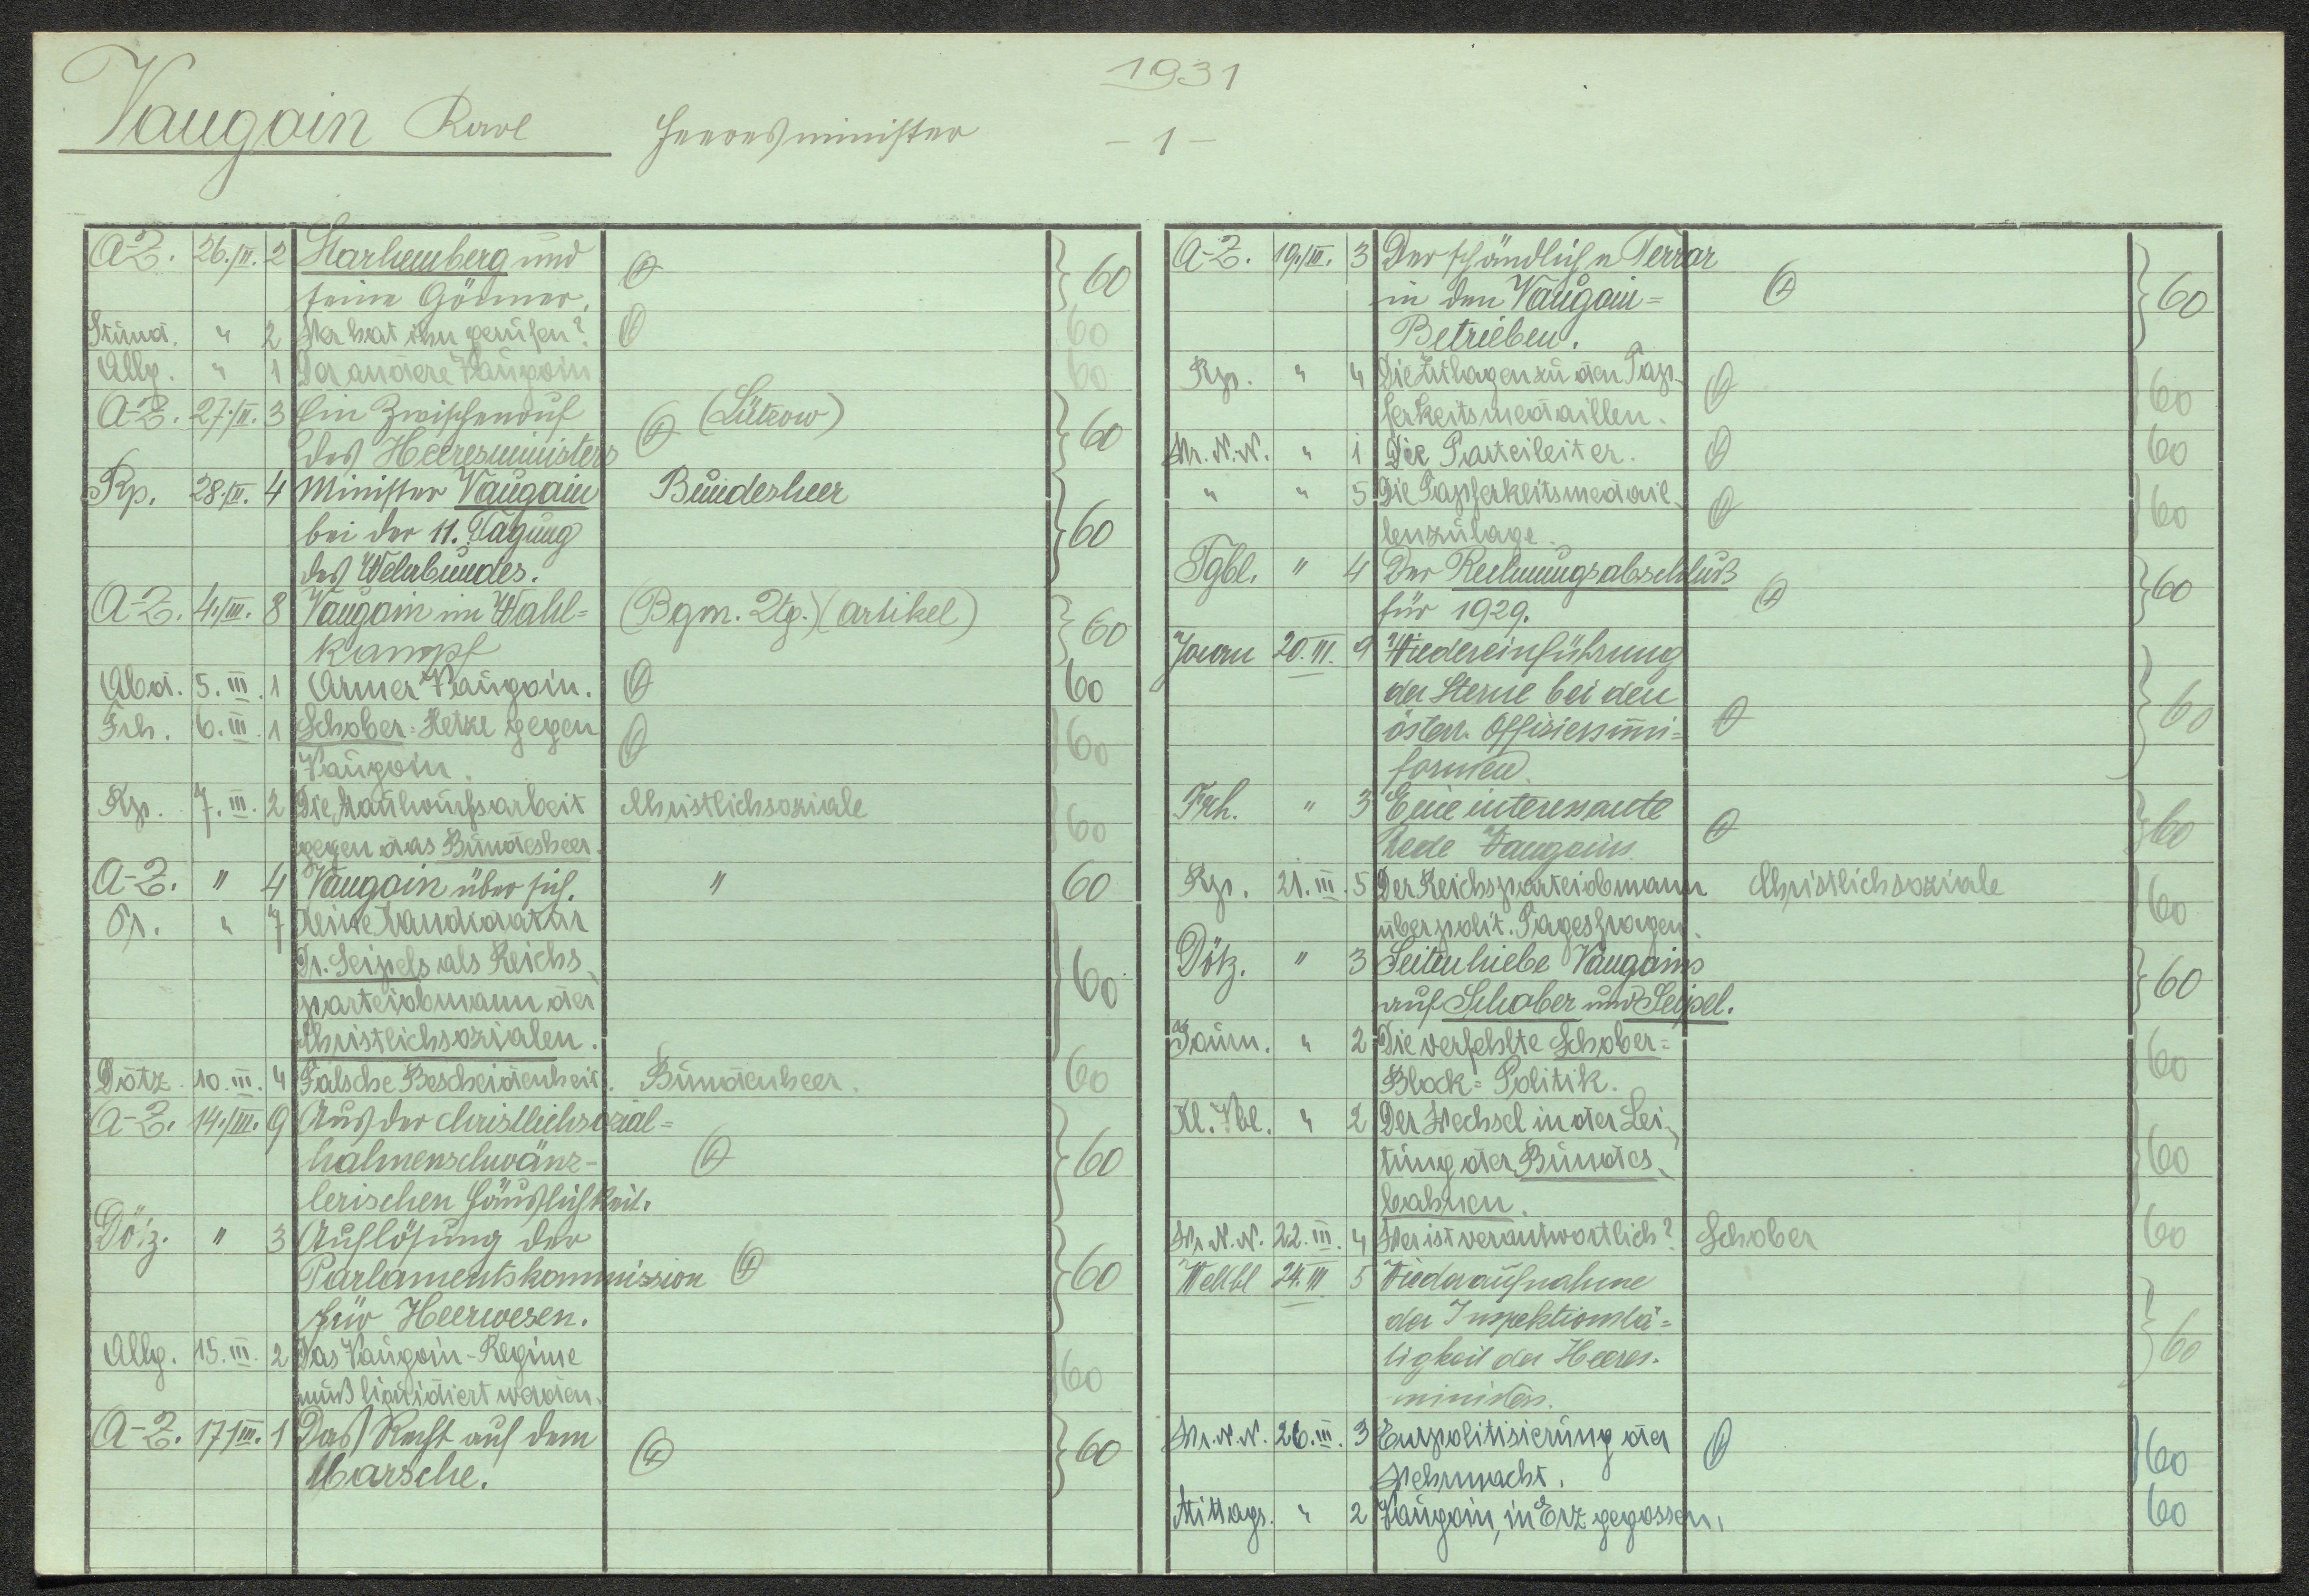 1931
Vaugoin Karl Heeresminister - 1 -
A-Z. 26./II. 2 Starhemberg und 60
seine Gönner.
Stund. " 2 Wer hat ihn gerufen? 60
Allg. " 1 Der andere Vaugoin 60
A-Z. 27./II. 3 Ein Zwischenruf (Lützow) 60
des Heeresministers
Rp. 28./II. 4 Minister Vaugoin Bundesheer 60
bei der 11. Tagung
des Wehrbundes.
A-Z. 4./III. 8 Vaugoin im Wahl= (Bgm. Ztg.) (Artikel) 60
kampf
Abd. 5. III. 1 Armer Vaugoin. 60
Frh. 6. III. 1 Schober=Hetze gegen 60
Vaugoin.
Rp. 7. III. 2 Die Maulwurfsarbeit Christlichsoziale 60
gegen das Bundesheer.
A-Z. " 4 Vaugoin über sich. " 60
Pr. " 7 Keine Kandidatur 60
Dr. Seipels als Reichs-
parteiobmann der
Christlichsozialen.
Dötz. 10. III. 4 Falsche Bescheidenheit. Bundenheer. 60
A-Z. 14./III. 9 Aus der christlichsozial= 60
hahnenschwänz-
lerischen Häuslichkeit.
Dötz. " 3 Auflösung der 60
Parlamentskommission
für Heerwesen.
Allg. 15. III. 2 Das Vaugoin-Regime 60
muß liquidiert werden.
A-Z. 17./III. 1 Das Recht auf dem 60
Marsche.
A-Z. 19./III. 3 Der schändliche Terror 60
in den Vaugoin=
Betrieben.
Rp. " 4 Die Zulagen zu den Tap- 60
ferkeitsmedaillen.
Wr. N. N. " 1 Die Parteileiter. 60
" " 5 Die Tapferkeitsmedail- 60
lenzulage.
Tgbl. " 4 Der Rechnungsabschluß 60
für 1929.
Journ 20. III. 9 Wiedereinführung 60
der Sterne bei den
österr. Offiziersuni=
formen.
Frh. " 3 Eine interessante 60
Rede Vaugoins
Rp. 21. III. 5 Der Reichsparteiobmann Christlichsoziale 60
über polit. Tagesfragen.
Dötz. " 3 Seitenhiebe Vaugoins 60
auf Schober und Seipel.
Journ. " 2 Die verfehlte Schober= 60
Block=Politik.
Kl. Vbl. " 2 Der Wechsel in der Lei- 60
tung der Bundes-
bahnen.
Wr. N. N. 22. III. 4 Wer ist verantwortlich? Schober 60
Weltbl 24. III. 5 Wiederaufnahme 60
der Inspektionstä=
tigkeit des Heeres-
ministers.
Wr. N. N. 26. III. 3 Entpolitisierung der 60
Wehrmacht.
Mittags. " 2 Vaugoin, in Erz gegossen. 60